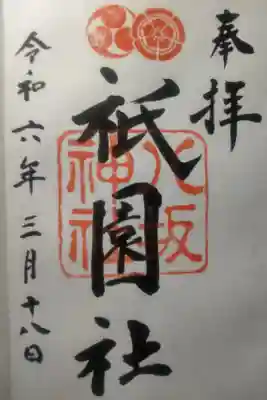 奉拝
祇園社
八坂神社
令和六年三月十八日